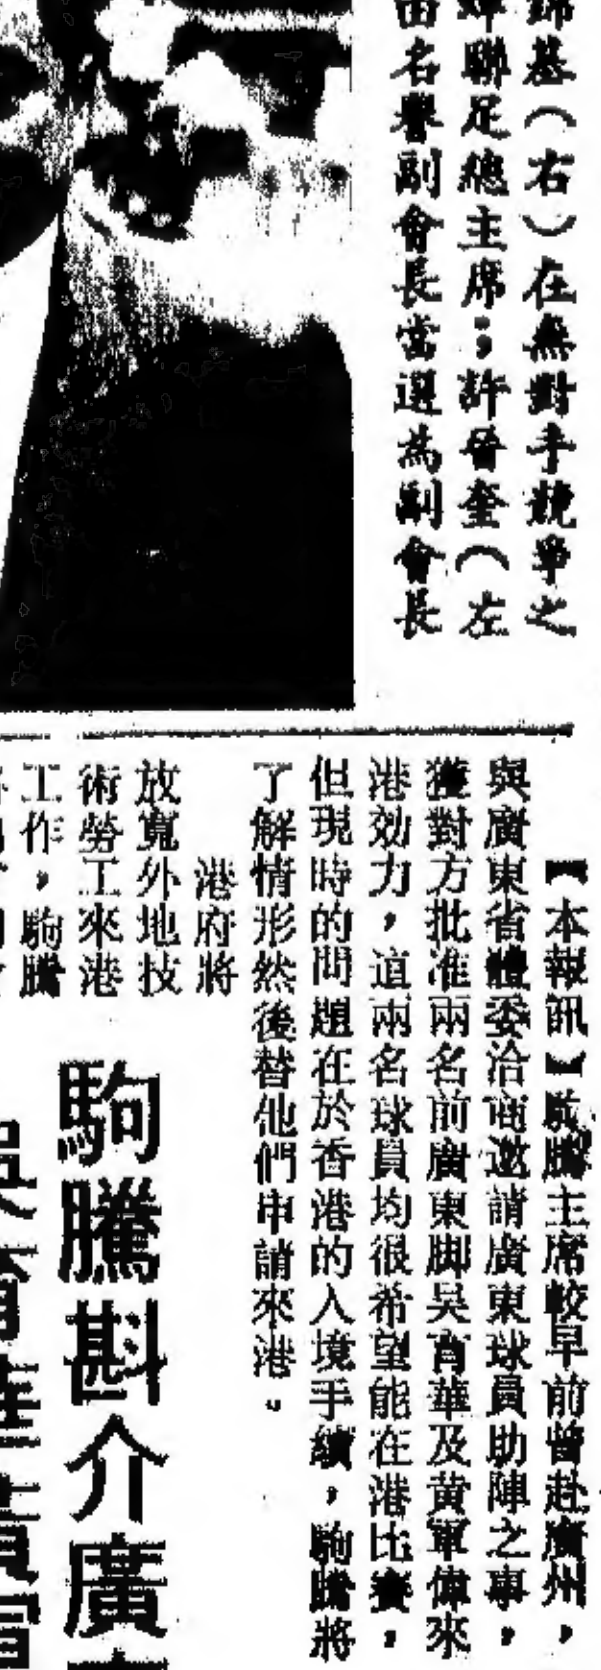 錦基（右）在無對手競爭之
聯足總主席；許晉奎（左
由名譽副會長當選為副會長
【本報訊】駒騰主席較早前曾赴廣州，
與廣東省體委洽商邀請廣東球員助陣之事，
獲對方批准兩名前廣東脚吳育華及黃軍偉來
港效力，這兩名球員均很希望能在港比賽，
但現時的問題在於香港的入境手續，駒騰將
了解情形然後替他們申請來港。
港府將
放寬外地技
術勞工來港
工作，駒騰
駒騰斟介廣